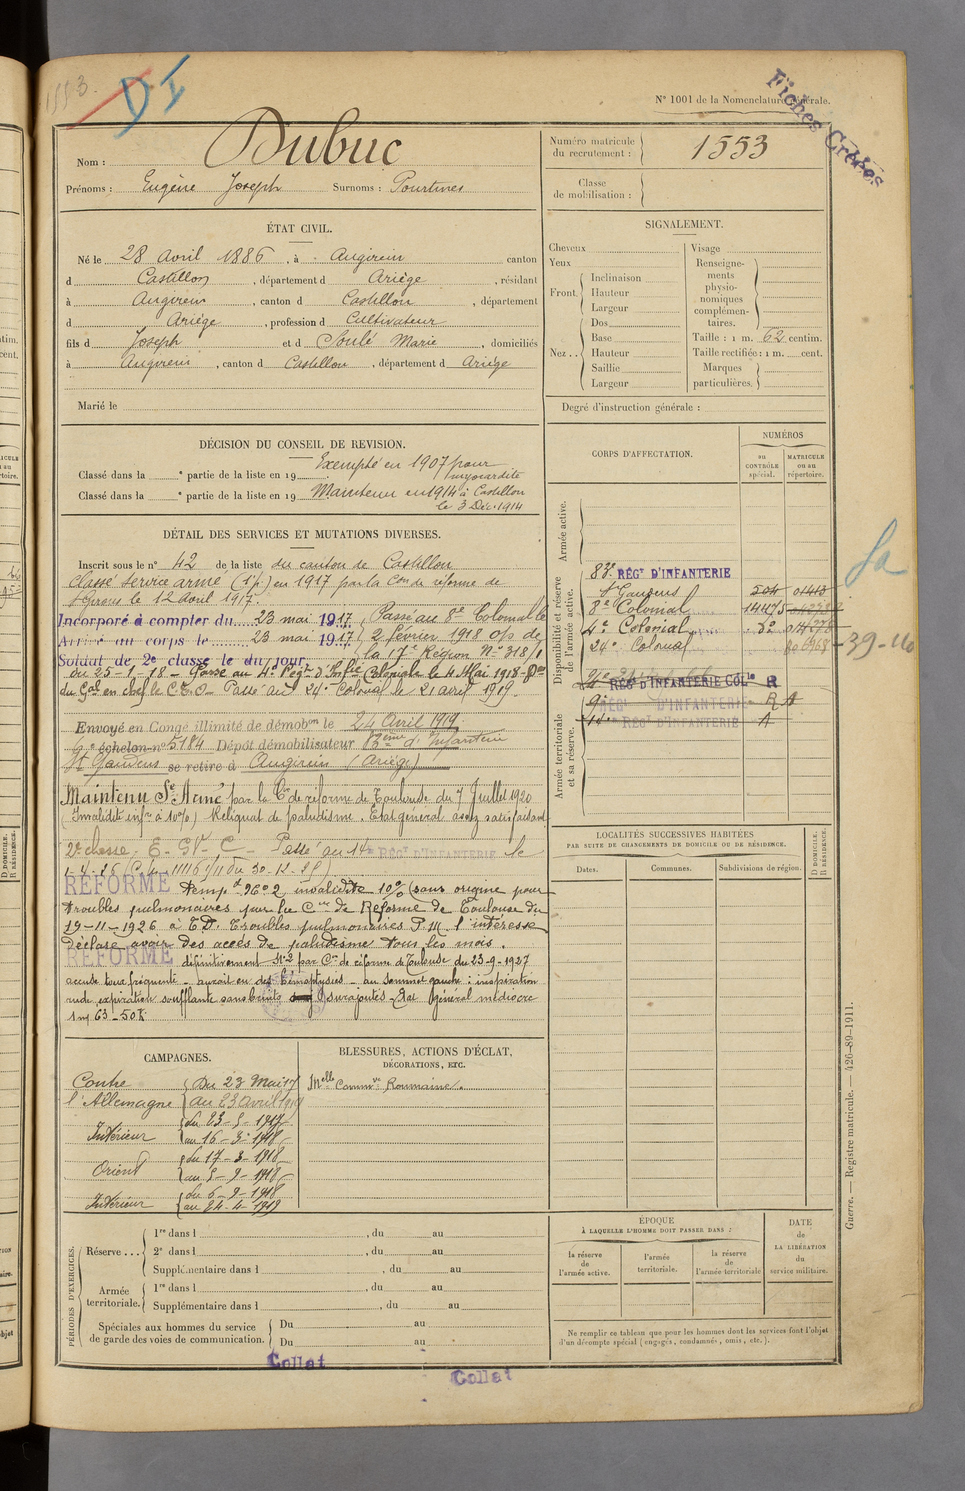 1553.
DI
N° 1001 de la Nomenclature générale.
Fiches Créées
Nom : Dubuc
Prénoms : Eugène Joseph Surnoms : Pourtines
Numéro matricule du recrutement : 1553
Classe de mobilisation :
ÉTAT CIVIL.
Né le 28 Avril 1886, à Augirein canton
d Castillon, département d Ariège, résidant
à Augirein, canton d Castillon, département
d Ariège, profession d Cultivateur
fils d Joseph et d Soulé Marie, domiciliés
à Augirein, canton d Castillon, département d Ariège
Marié le
SIGNALEMENT.
Cheveux
Yeux
Front. Inclinaison
Hauteur
Largeur
Nez .. Dos
Base
Hauteur
Saillie
Largeur
Visage
Renseignements physionomiques complémentaires.
Taille : 1 m. 62 centim.
Taille rectifiée : 1 m. cent.
Marques particulières.
Degré d'instruction générale :
DÉCISION DU CONSEIL DE REVISION.
Classé dans la e partie de la liste en 19 Exempté en 1907 pour myocardite
Classé dans la e partie de la liste en 19 Maintenu en 1914 à Castillon
le 3 Déc. 1914
DÉTAIL DES SERVICES ET MUTATIONS DIVERSES.
Inscrit sous le n° 42 de la liste du canton de Castillon
Classé service armé (1 p.) en 1917 par la Con de réforme de
St Girons le 12 Avril 1917.
Incorporé à compter du 23 mai 1917 Passé au 8e Colonial le
Arrivé au corps le 23 mai 1917 2 février 1918 o/s de
Soldat de 2e classe le du jour la 17e Région N° 318/1
du 25-1-18 - Passé au 4e Régt d'Infie Coloniale le 4 Mai 1918
du Gal en chef le C.E.O - Passé au 24e Colonial le 21 avril 1919.
Envoyé en Congé illimité de démobon le 24 Avril 1919
échelon n° 5184 Dépôt démobilisateur 83ème d'Infanterie
St Gaudens se retire à Augirein (Ariège)
Maintenu Sce Armé par la Con de réforme de Toulouse du 7 Juillet 1920
(Invalidité infre à 10%) Reliquat de paludisme. Etat général assez satisfaisant
Passé au 14e RÉGt D'INFANTERIE le
RÉFORMÉ Tempt 96 0 2 invalidité 10% (sans origine pour
troubles pulmonaires par la Con de Réforme de Toulouse du
19-11-1926 à T.D. Troubles pulmonaires P.M. l'intéressé
déclare avoir des accès de paludisme tous les mois.
RÉFORMÉ définitivement N° 2 par Con de réforme de Toulouse du 23-9-1937
accuse toux fréquente - aurait eu des hémoptysies - au sommet gauche : inspiration
rude, expiration soufflante sans bruits surajoutés - Etat général médiocre
1m 63 - 50 K
CORPS D'AFFECTATION.
NUMÉROS
au CONTRÔLE spécial.
MATRICULE ou au répertoire.
Armée active.
Disponibilité et réserve de l'armée active.
Armée territoriale et sa réserve.
83e RÉGt D'INFANTERIE
St Gaudens 504
8e Colonial 14475
4e Colonial
24e Colonial
RÉGt D'INFANTERIE COLle R
RÉGt D'INFANTERIE R A
14e RÉGt D'INFANTERIE A
39-40
LOCALITÉS SUCCESSIVES HABITÉES
PAR SUITE DE CHANGEMENTS DE DOMICILE OU DE RÉSIDENCE.
Dates.
Communes.
Subdivisions de région.
D DOMICILE. R RÉSIDENCE.
CAMPAGNES.
Contre l'Allemagne Du 23 Mai 17
au 23 avril 1919
Intérieur du 23-5-1917
au 16-3-1918
Orient du 17-3-1918
au 5-9-1918
Intérieur du 6-9-1918
au 24-4-1919
BLESSURES, ACTIONS D'ÉCLAT,
DÉCORATIONS, ETC.
Melle Commve Roumaine.
PÉRIODES D'EXERCICES.
Réserve ... 1re dans l , du au
2e dans l , du au
Supplémentaire dans l , du au
Armée territoriale. 1re dans l , du au
Supplémentaire dans l , du au
Spéciales aux hommes du service de garde des voies de communication. Du au
Du au
ÉPOQUE
À LAQUELLE L'HOMME DOIT PASSER DANS :
la réserve de l'armée active.
l'armée territoriale.
la réserve de l'armée territoriale
DATE de LA LIBÉRATION du service militaire.
Ne remplir ce tableau que pour les hommes dont les services font l'objet
d'un décompte spécial (engagés, condamnés, omis, etc.).
Guerre. — Registre matricule. — 426-89-1911.
Collat
Collat